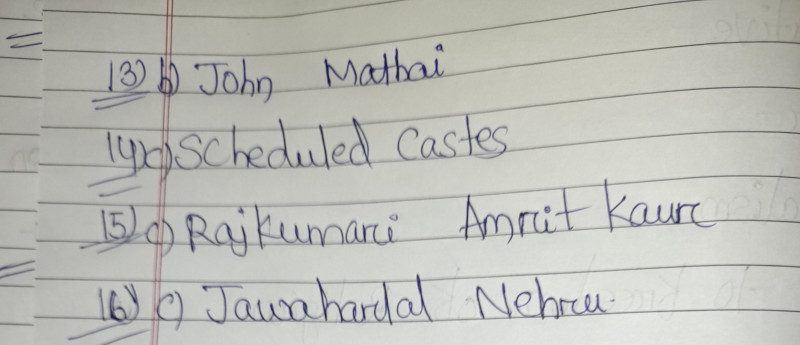 13) b) John Mathai
14) c) Scheduled Castes
15) c) Rajkumari Amrit Kaur
16) c) Jawaharlal Nehru.